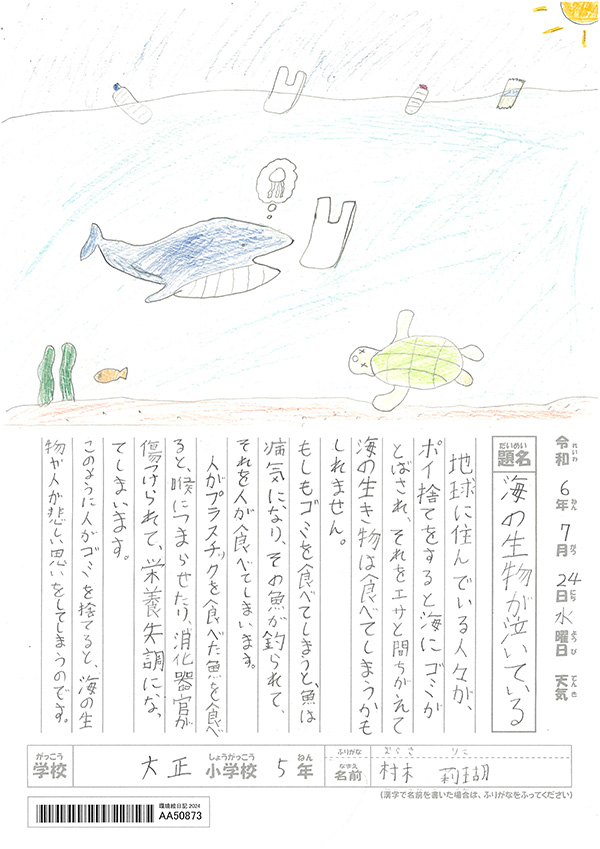 令和6年7月24日水曜日 天気
れいわ ねん がつ にち ようび てんき
だいめい
題名 海の生物が泣いている
地球に住んでいる人々が、
ポイ捨てをすると海にゴミが
とばされ、それをエサと間ちがえて
海の生き物は食べてしまうかも
しれません。
もしもゴミを食べてしまうと、魚は
病気になり、その魚が釣られて、
それを人が食べてしまいます。
人がプラスチックを食べた魚を食べ
ると、喉につまらせたり、消化器官が
傷つけられて、栄養失調にな
てしまいます。
このように人がゴミを捨てると、海の生
物や人が悲しい思いをしてしまうのです。
がっこう しょうがっこう ねん
学校 大正 小学校 5年
ふりがな りこ
なまえ
名前 村木 莉瑚
(漢字で名前を書いた場合は、ふりがなをふってください)
環境絵日記 2024
AA50873